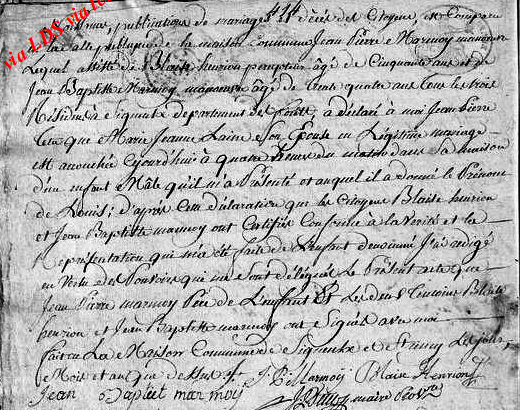 naissances, publications de mariages et décès des Citoyens, est Comparu
En la Salle publique de la maison Commune Jean Pierre Marmoy manoeuvre
Lequel assisté de Blaise henrion âgé de Cinquante ans et de
Jean Baptiste Marmoy manoeuvre âgé de trente quatre ans tous les trois
Résidens à Signeulx département des forêts a déclaré à moi Jean Pierre
que Marie Jeanne Laine Son Epouse en Légitime mariage
est accouchée cejourd'hui à quatre heures du matin dans Sa maison
d'un enfant Mâle qu'il m'a Présenté et auquel il a donné le Prénom
de Louis; d'après Cette déclaration que les Citoyens Blaise henrion
et Jean Baptiste marmoy ont Certifiée Conforme à la Vérité et la
représentation qui m'a été faite de L'enfant denommé J'ai rédigé
en Vertu des Pouvoirs qui me sont délégués le Présent acte que
Jean Pierre marmoy Père de L'enfant Et Les deux temoins Blaise
henrion et Jean Baptiste marmoy ont Signés avec moi
fait en La Maison Commune de Signeulx Les jour,
Mois et an que dessus J P Marmoy Blaise Henrion
Jean Baptiste marmoy maire
via LDS via lu